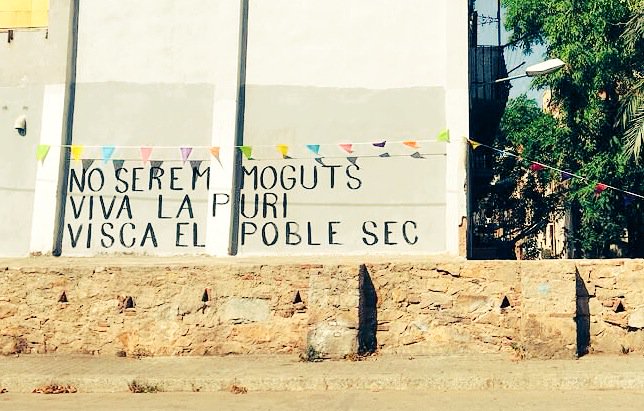 NO SEREM MOGUTS
VIVA LA PURI
VISCA EL POBLE SEC